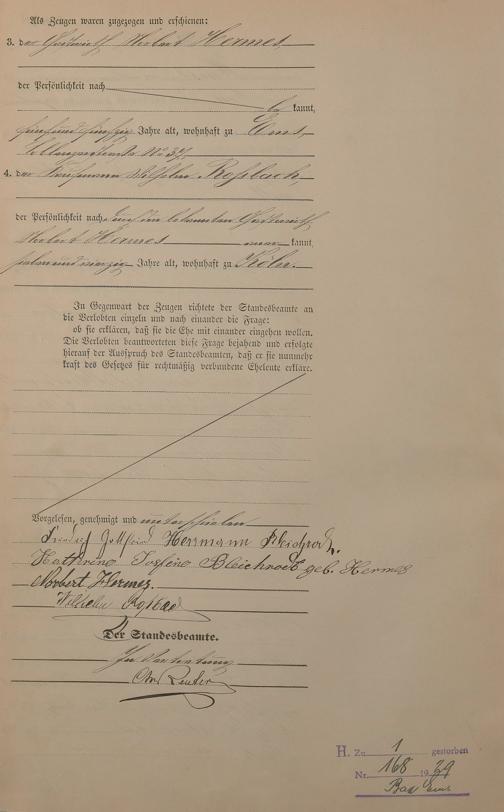 Als Zeugen waren zugezogen und erschienen:
3. der Gastwirth Norbert Hermes,
der Persönlichkeit nach
be kannt,
fünfundfünfzig Jahre alt, wohnhaft zu Ems,
No 37,
4. der Kaufmann Wilhelm Roßbach,
der Persönlichkeit nach durch den bekannten Gastwirth
Norbert Hermes aner kannt,
siebenundzwanzig Jahre alt, wohnhaft zu Köln.
In Gegenwart der Zeugen richtete der Standesbeamte an
die Verlobten einzeln und nach einander die Frage:
ob sie erklären, daß sie die Ehe mit einander eingehen wollen.
Die Verlobten beantworteten diese Frage bejahend und erfolgte
hierauf der Ausspruch des Standesbeamten, daß er sie nunmehr
kraft des Gesetzes für rechtmäßig verbundene Eheleute erkläre.
Vorgelesen, genehmigt und unterschrieben
Herrmann Bleichrodt.
Katharina Josefine Bleichrodt geb. Hermes
Norbert Hermes.
Wilhelm Roßbach
Der Standesbeamte.
In Vertretung
Reuter
H. Zu 1 gestorben
Nr. 168 1939
Bad Ems